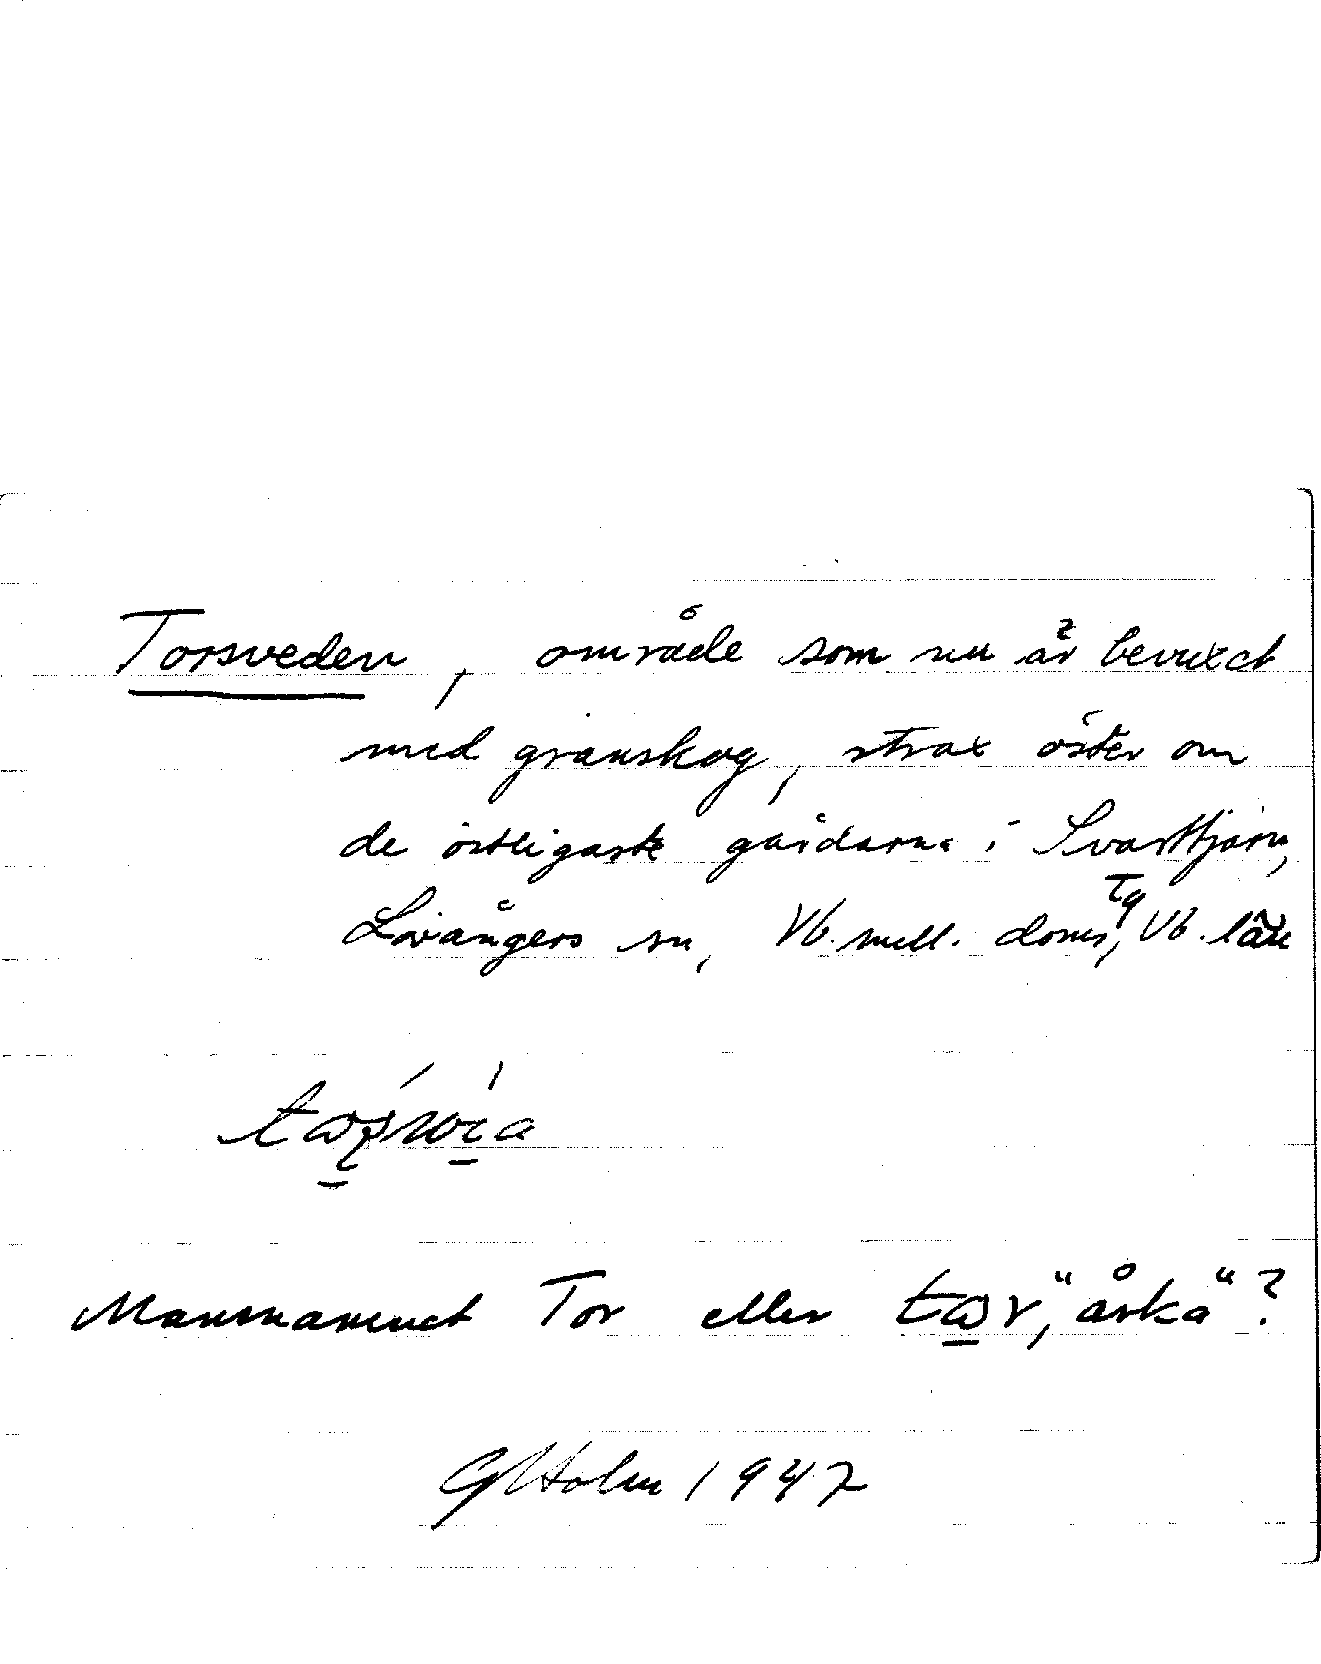 Torsveden, område som nu är bevuxet
med granskog, strax öster om
de östligaste gårdarna i Svarttjärn,
Lövångers sn, Vb. mell. doms, tg Vb. län
Mansnamnet Tor eller tɷr, "åska"?
G Holm 1947